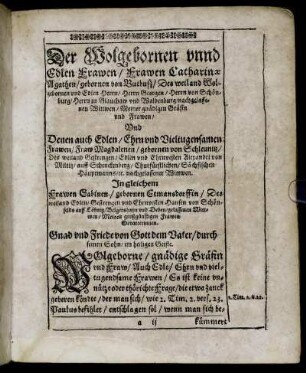 Der Wolgebornen vnnd
Edlen Frawen / Frawen Catharinæ
Agathen / gebornen von / Des weiland Wol-
gebornen vnd Edlen Herrn / Herrn Georgen / Herrn von Schön-
burg / Herrn zu Glauchaw vnd Waldenburg nachgelasse-
nen Witwen / Meiner gnädigen Gräfin
vnd Frawen /
Vnd
Denen auch Edlen / Ehrn vnd Vieltugensamen
Frawen / Fraw Magdalenen / gebornen von Schleinitz /
Des weiland Gestrengen / Edlen vnd Ehrnvesten Alexanders von
Miltitz / auff Schenckenberg / Churfürstlichen / Sächsischen
nachgelassener Witwen.
In gleichem
Frawen Sabinen / gebornen / Des
weiland Edlen / Gestrengen vnd Ehrnvesten Hansen von Schön-
felds auff vnd Wit-
wen / Meinen großgünstigen Frawen
Gnad vnd Friede von Gott dem Vater / durch
seinen Sohn / im heiligen Geiste.
WOlgeborne / gnädige Gräfin
vnd Fraw / Auch Edle / Ehrn vnd viel-
tugendsame Frawen / Es ist keine vn-
nütze oder thörichte Frage / die etwa zanck
geberen köndte / der man sich / wie 2. Tim. 2. vers. 23.
Paulus befihlet / entschlagen sol / wenn man sich be-
2. Tim. 2. v. 23.
a ij
kümmert